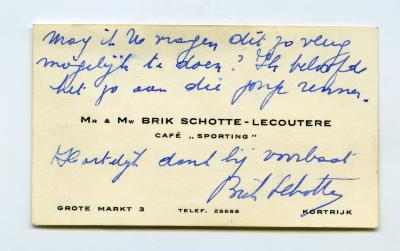 mag ik U vragen dit zo vlug
mogelijk te doen? Ik beloofde
het zo aan die jonge renner.
MR & MW BRIK SCHOTTE-LECOUTERE
CAFÉ „SPORTING"
Hartelijk dank bij voorbaat
Brik Schotte
GROTE MARKT 3 TELEF. 25888 KORTRIJK